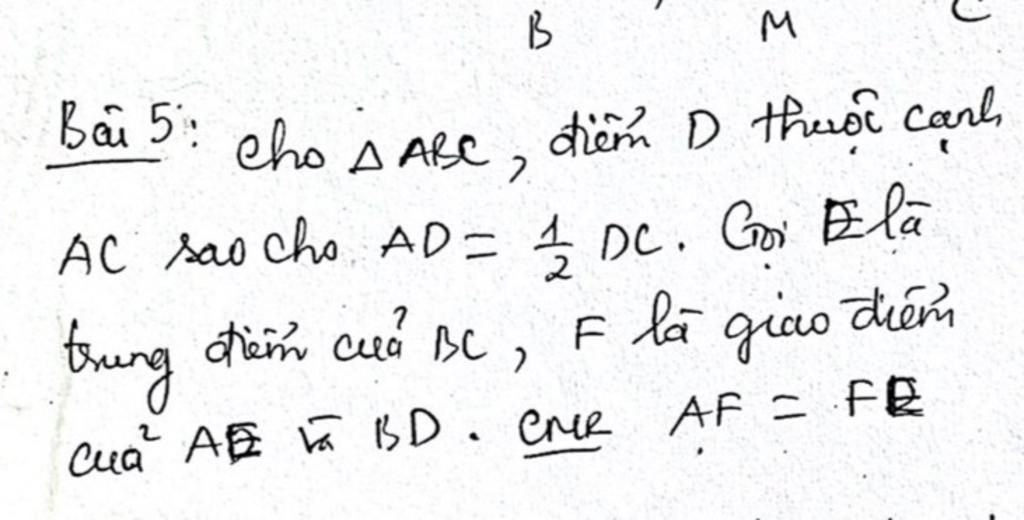 B M C
Bài 5: Cho △ ABC, điểm D thuộc cạnh
AC sao cho AD = 1/2 DC. Gọi E là
trung điểm của BC, F là giao điểm
của AE và BD. CMR AF = FE